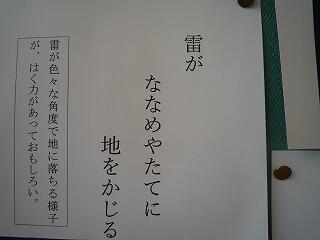 雷が
ななめやたてに
地をかじる
雷が色々な角度で地に落ちる様子
が、はく力があっておもしろい。